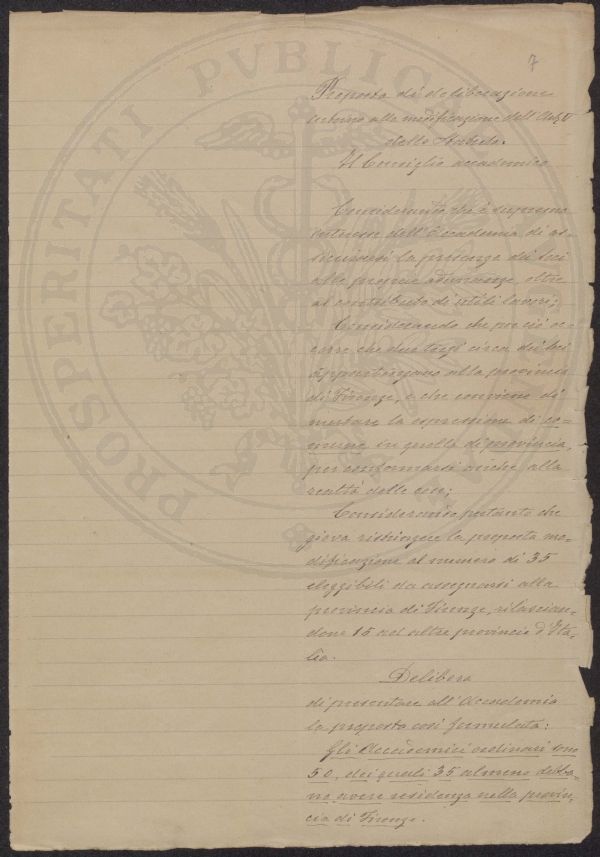 7
Proposta di deliberazione
intorno alla modificazione dell'Art.
dello Statuto.
Il Consiglio accademico
Considerando che è supremo
interesse dell'Accademia di as-
sicurarsi la presenza dei soci
alle proprie adunanze, oltre
al contributo di utili lavori;
Considerando che perciò oc-
corre che due terzi circa dei soci
appartengano alla provincia
di Firenze, e che conviene di
mutare la espressione di co-
mune in quella di provincia,
per conformarsi anche alla
realtà delle cose;
Considerando pertanto che
giova ristringere la proposta mo-
dificazione al numero di 35
eleggibili da assegnarsi alla
provincia di Firenze, rilascian-
done 15 ad altre provincie d'Ita-
lia.
Delibera
di presentare all'Accademia
la proposta così formulata:
Gli Accademici ordinari sono
50, dei quali 35 almeno debba-
no avere residenza nella provin-
cia di Firenze.
PROSPERITATI PVBLICAE